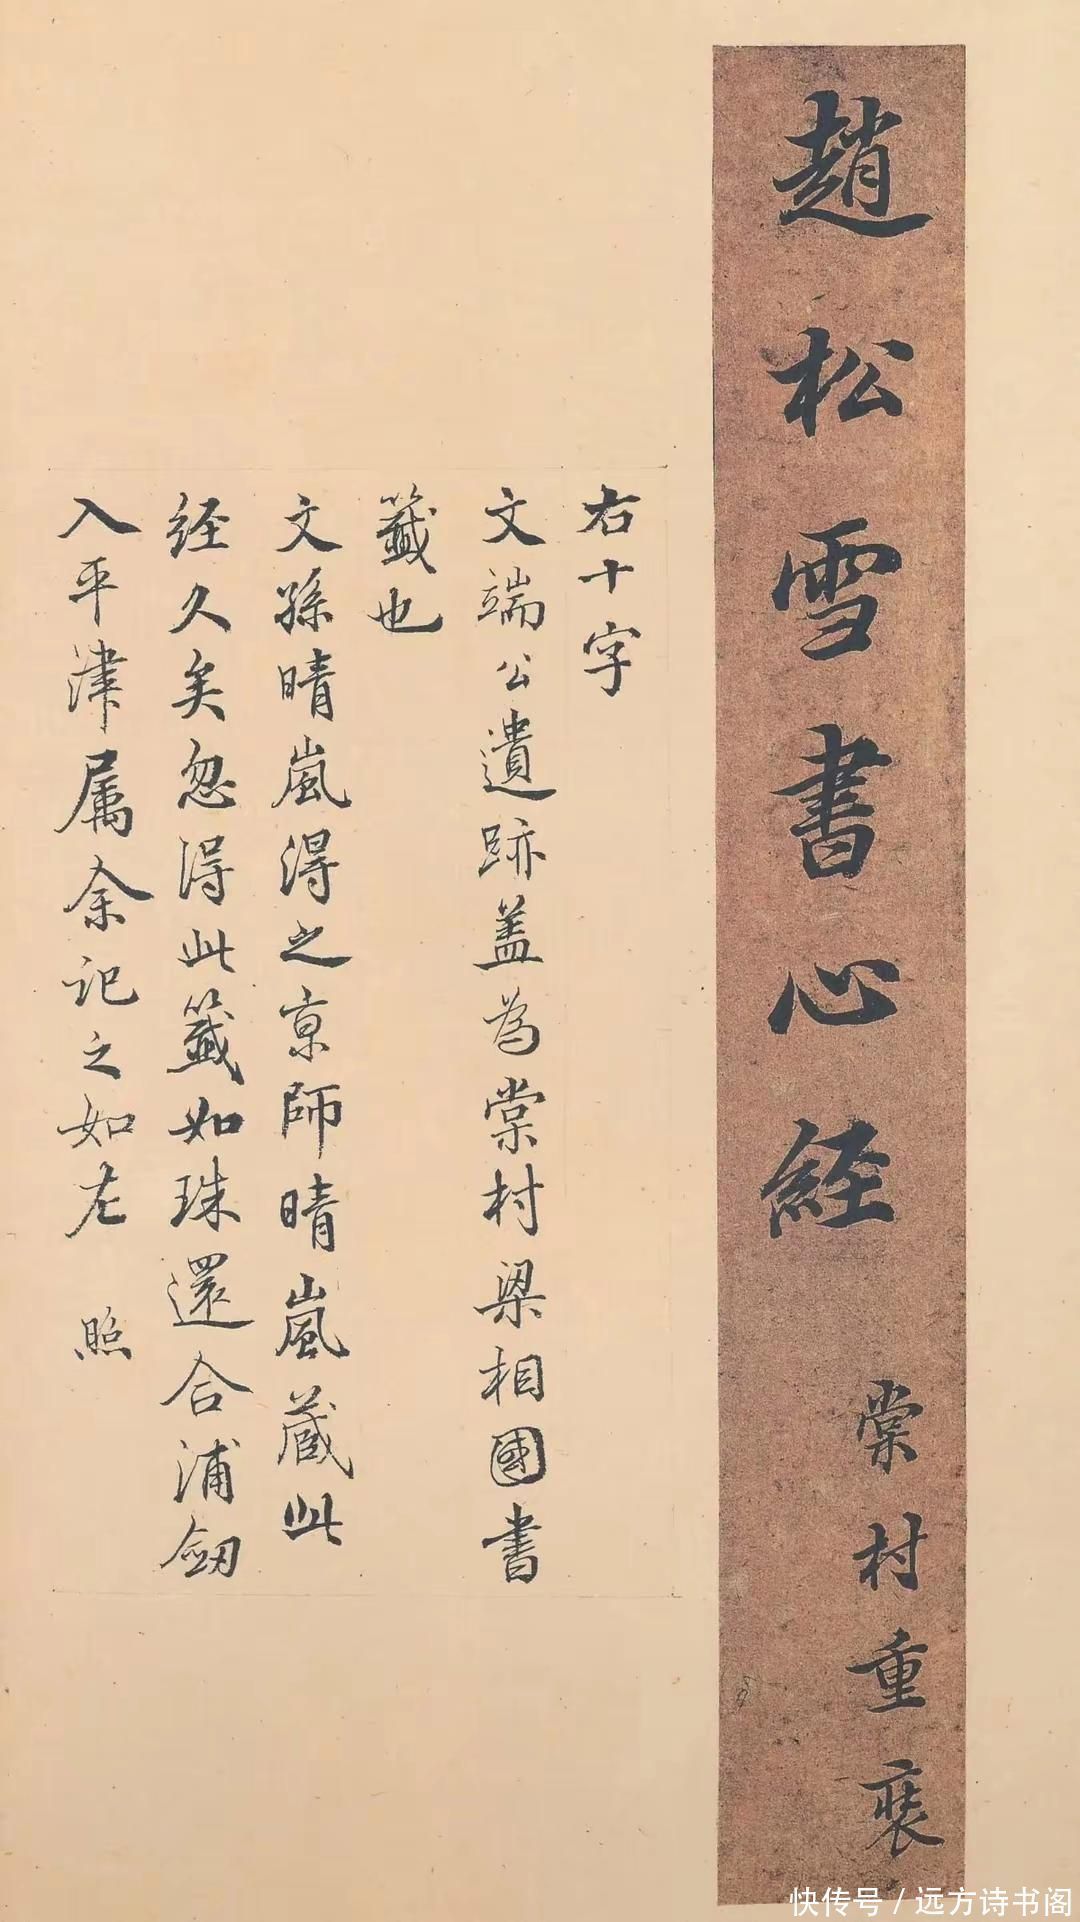 趙松雪書心経
棠村重裝
右十字
文端公遺跡蓋為棠村梁相國書
籤也
文孫晴嵐得之京師晴嵐蔵此
经久矣忽得此籤如珠還合浦劔
入平津属余記之如左 照
快传号 / 远方诗书阁